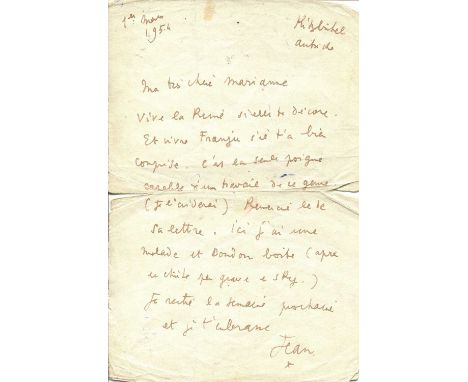 1er Mars Kitzbühel
1954
Ma très chère Marianne
Vive la si elle te décore.
Et vive Françis s'il t'a bien
comprise. C'est la seule
capable d'un travail de ce genre
(je l'aiderai) Remercie le de
sa lettre. Ici j'ai une
malade et Doudou boite (après
une chute pas grave en sky.)
Je rentre la semaine prochaine
et je t'embrasse
Jean
*